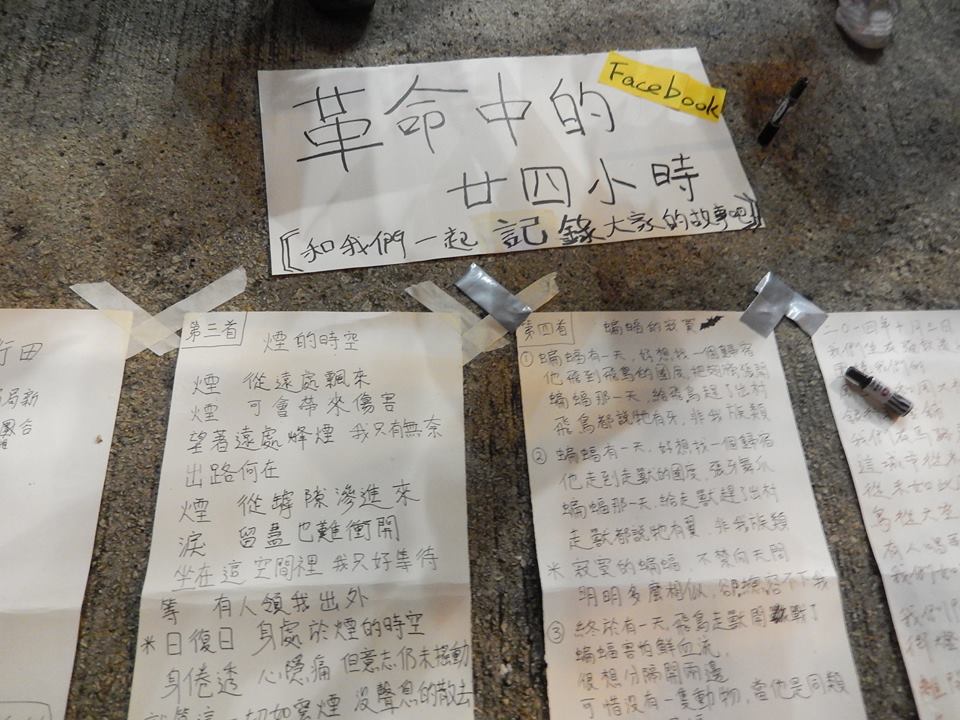 Facebook
革命中的
廿四小時
〖和我們一起記錄大家的故事吧〗
行田
局新
第三首
煙的時空
煙 從遠處飄來
煙 可會帶來傷害
望著遠處烽煙 我只有無奈
出路何在
煙 從罅隙滲進來
淚 留盡也難衝開
坐在這空間裡 我只好等待
等 有人領我出外
*日復日 身處於煙的時空
身倦透 心隱痛 但意志仍未搖動
切如雲煙 沒聲息的散去
第四首
蝙蝠的寂寞
① 蝙蝠有一天,好想找一個歸宿
他飛到飛鳥的國度,把翅膀
蝙蝠那一天,給飛鳥趕了出村
飛鳥都說牠有牙,非我族類
② 蝙蝠有一天,好想找一個歸宿
他走到走獸的國度,張牙舞爪
蝙蝠那一天,給走獸趕了出村
走獸都說牠有翼,非我族類
* 寂寞的蝙蝠,不禁向天問
明明多麼相似,卻總容不下我
③ 終於有一天,飛鳥走獸開戰了
蝙蝠害怕鮮血流,
很想分隔開兩邊
可惜沒有一隻動物,當他是同類
二〇一四年十月三日
我們
這城市從未
從未如此
有人唱
我們
我們
街燈